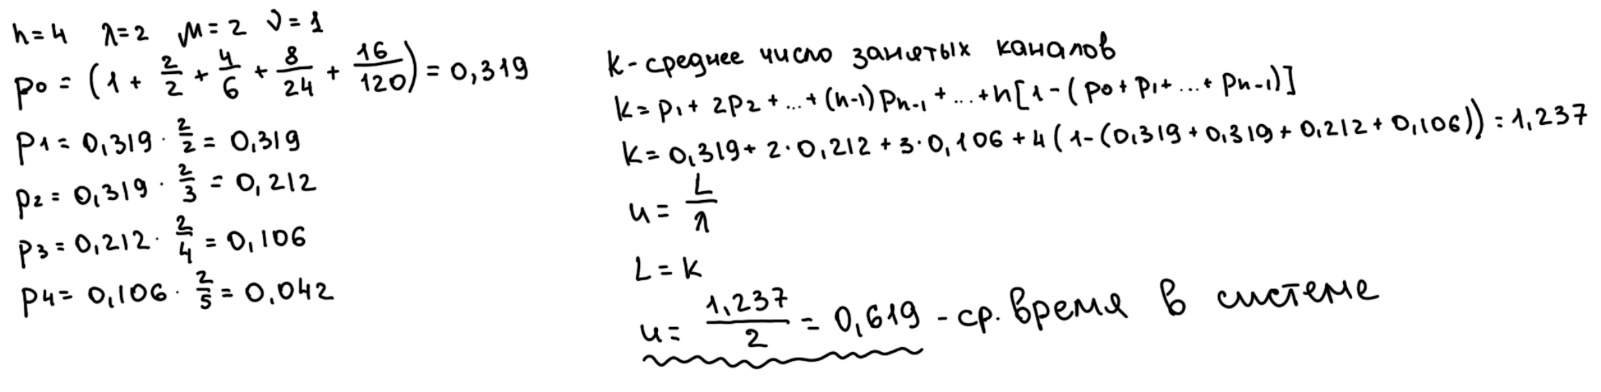 n=4 λ=2 μ=2 ν=1
p0 = (1 + 2/2 + 4/6 + 8/24 + 16/120) = 0,319
p1 = 0,319 · 2/2 = 0,319
p2 = 0,319 · 2/3 = 0,212
p3 = 0,212 · 2/4 = 0,106
p4 = 0,106 · 2/5 = 0,042
k - среднее число занятых каналов
k = p1 + 2p2 + ... + (n-1)pn-1 + ... + n[1 - (p0 + p1 + ... + pn-1)]
k = 0,319 + 2·0,212 + 3·0,106 + 4(1-(0,319+0,319+0,212+0,106)) = 1,237
u = L/λ
L = k
u = 1,237/2 = 0,619 - ср. время в системе